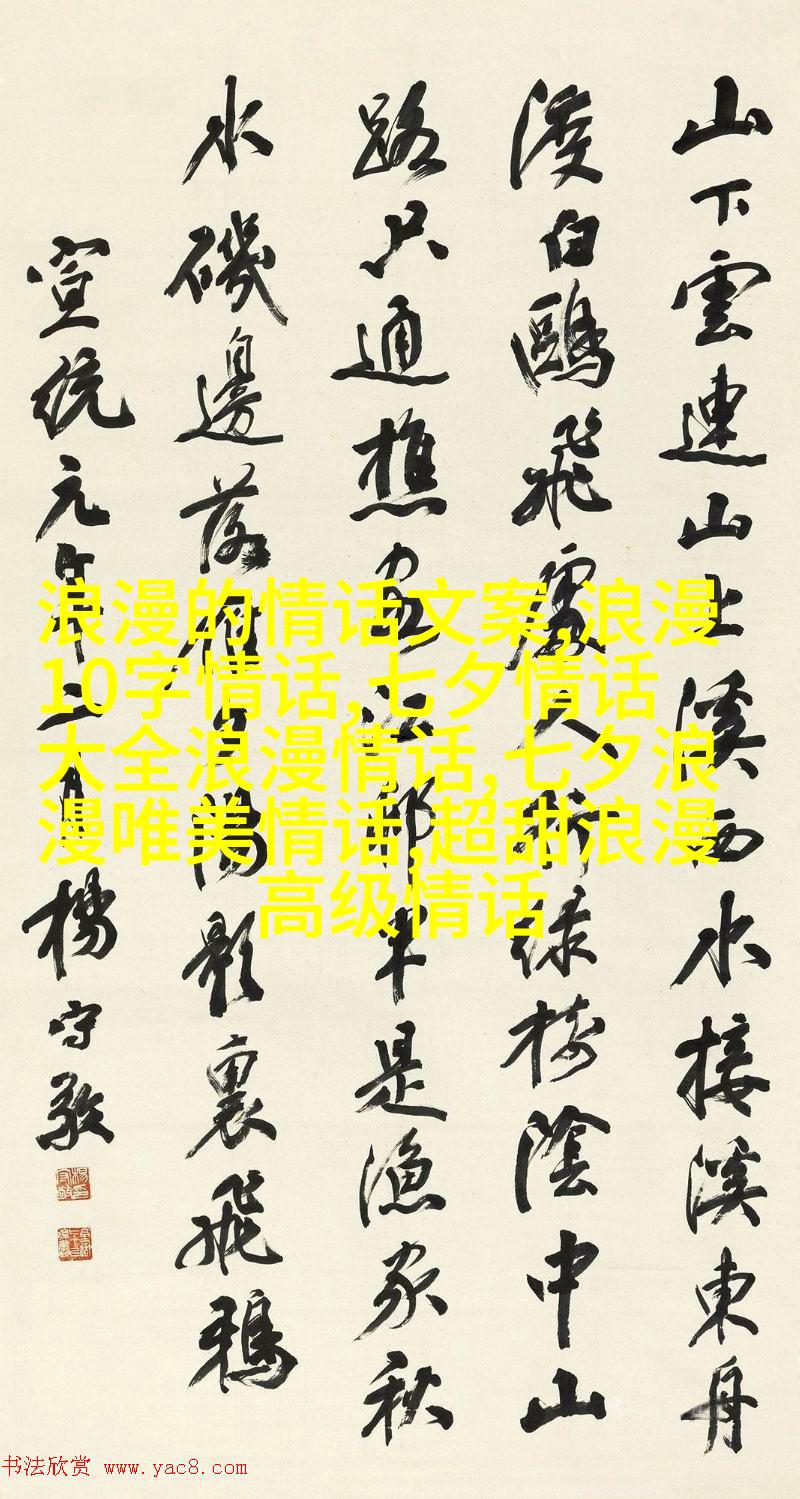 山下雲連山上溪西水接溪東舟
渡白鷗飛處人行綠樹陰中山
路只通樵客江村半是漁家秋
水磯邊落雁夕陽影裏飛鴉
宣統元年二月楊守敬
浪漫的情话文案,浪漫
10字情话,七夕情话
大全浪漫情话,七夕浪
漫唯美情话,超甜浪漫
高级情话
书法欣赏 www.yac8.com